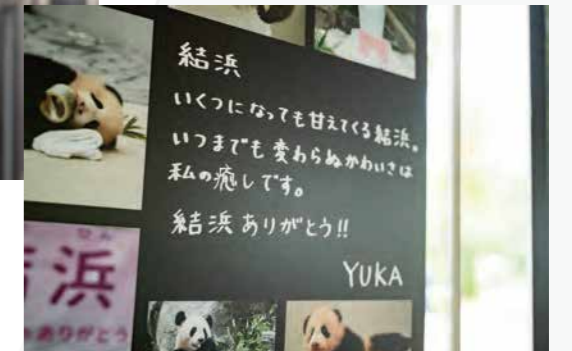 結浜
いくつになっても甘えてくる結浜。
いつまでも変わらぬかわいさは
私の癒しです。
結浜 ありがとう!!
YUKA
浜
ありがとう